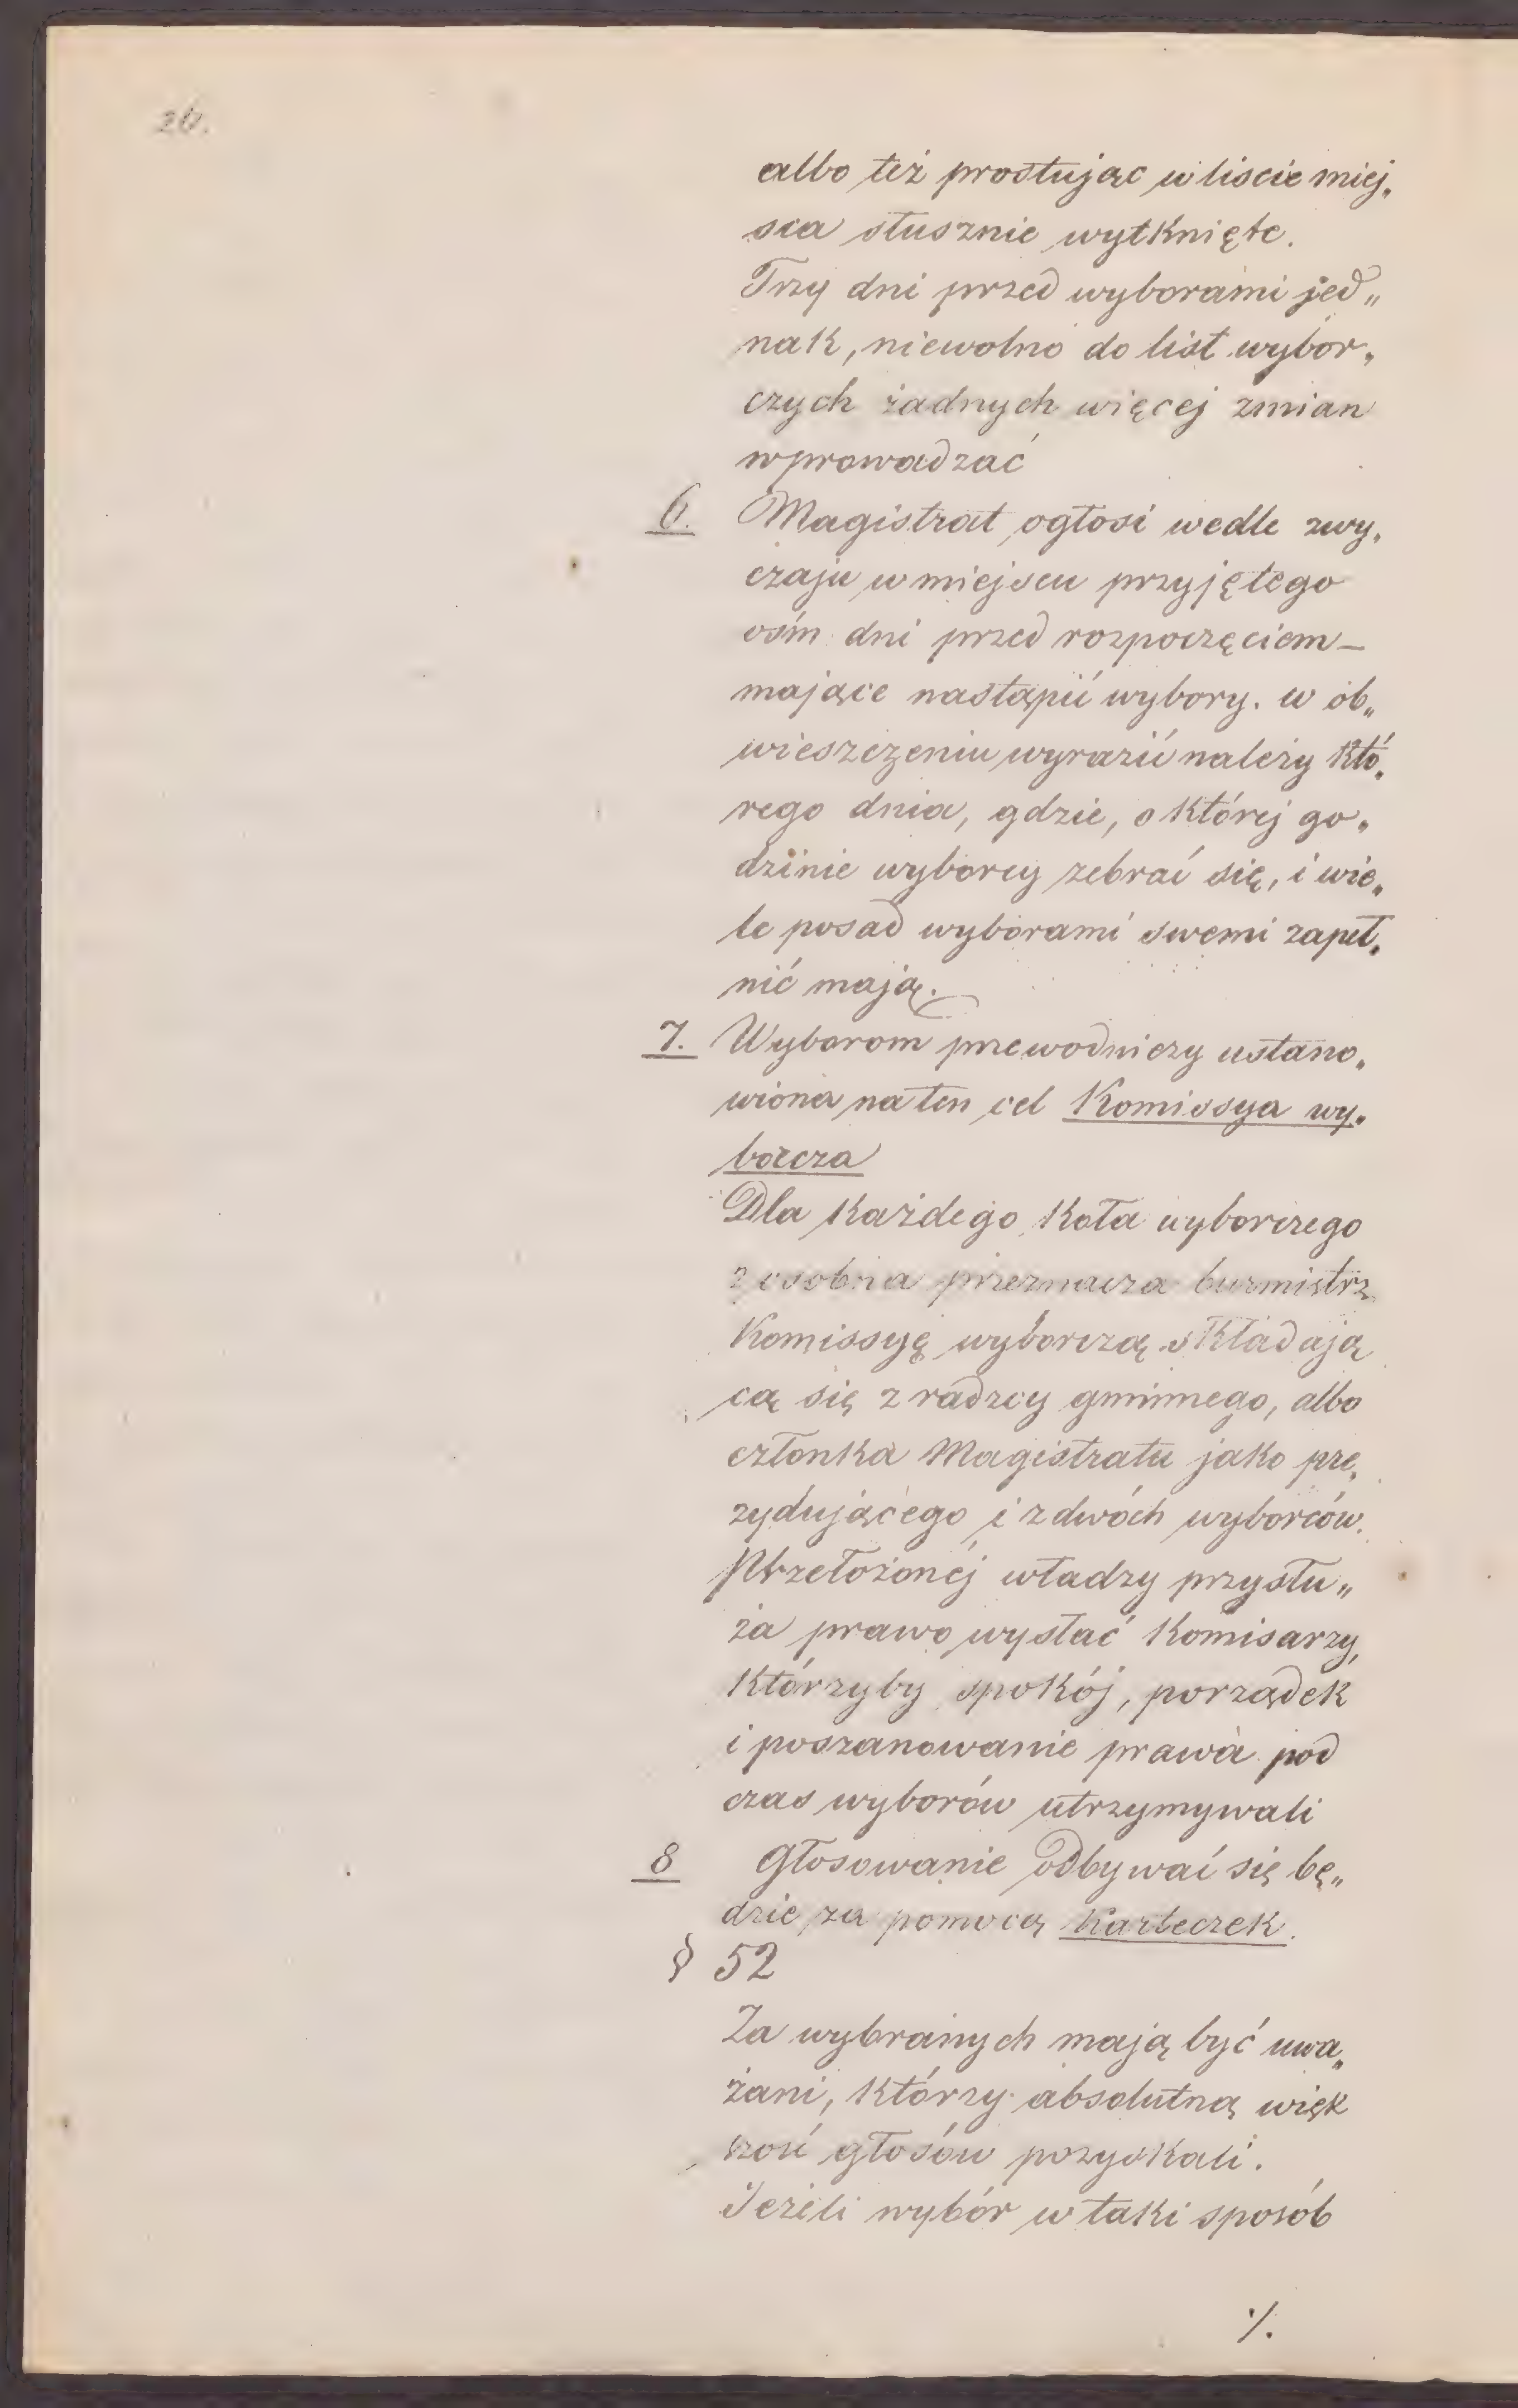 20.
albo też prostując w liście miej„
sca słusznie wytknięte.
Trzy dni przed wyborami jed„
nak, niewolno do list wybor„
czych żadnych więcej zmian
wprowadzać
6. Magistrat ogłosi wedle zwy„
czaju w miejscu przyjętego
ośm dni przed rozpoczęciem —
mające nastąpić wybory. w ob„
wieszczeniu wyrazić należy któ„
rego dnia, gdzie, o której go„
dzinie wyborcy zebrać się, i wie„
le posad wyborami swemi zapeł„
nić mają.
7. Wyborom przewodniczy ustano„
wiona na ten cel Komissya wy„
borcza
Dla każdego koła wyborczego
z osobna przeznacza burmistrz
Komissyę wyborczą składają
cą się z radzcy gminnego, albo
członka Magistratu jako pre„
zydującego i z dwóch wyborców.
Przełożonéj władzy przysłu„
ża prawo wysłać Komisarzy,
którzyby spokój, porządek
i poszanowanie prawa pod
czas wyborów utrzymywali
8 Głosowanie odbywać się bę„
dzie za pomocą karteczek.
§ 52
Za wybranych mają być uwa„
żani, którzy absolutną więk
szość głosów pozyskali.
Jeżeli wybór w taki sposób
./.